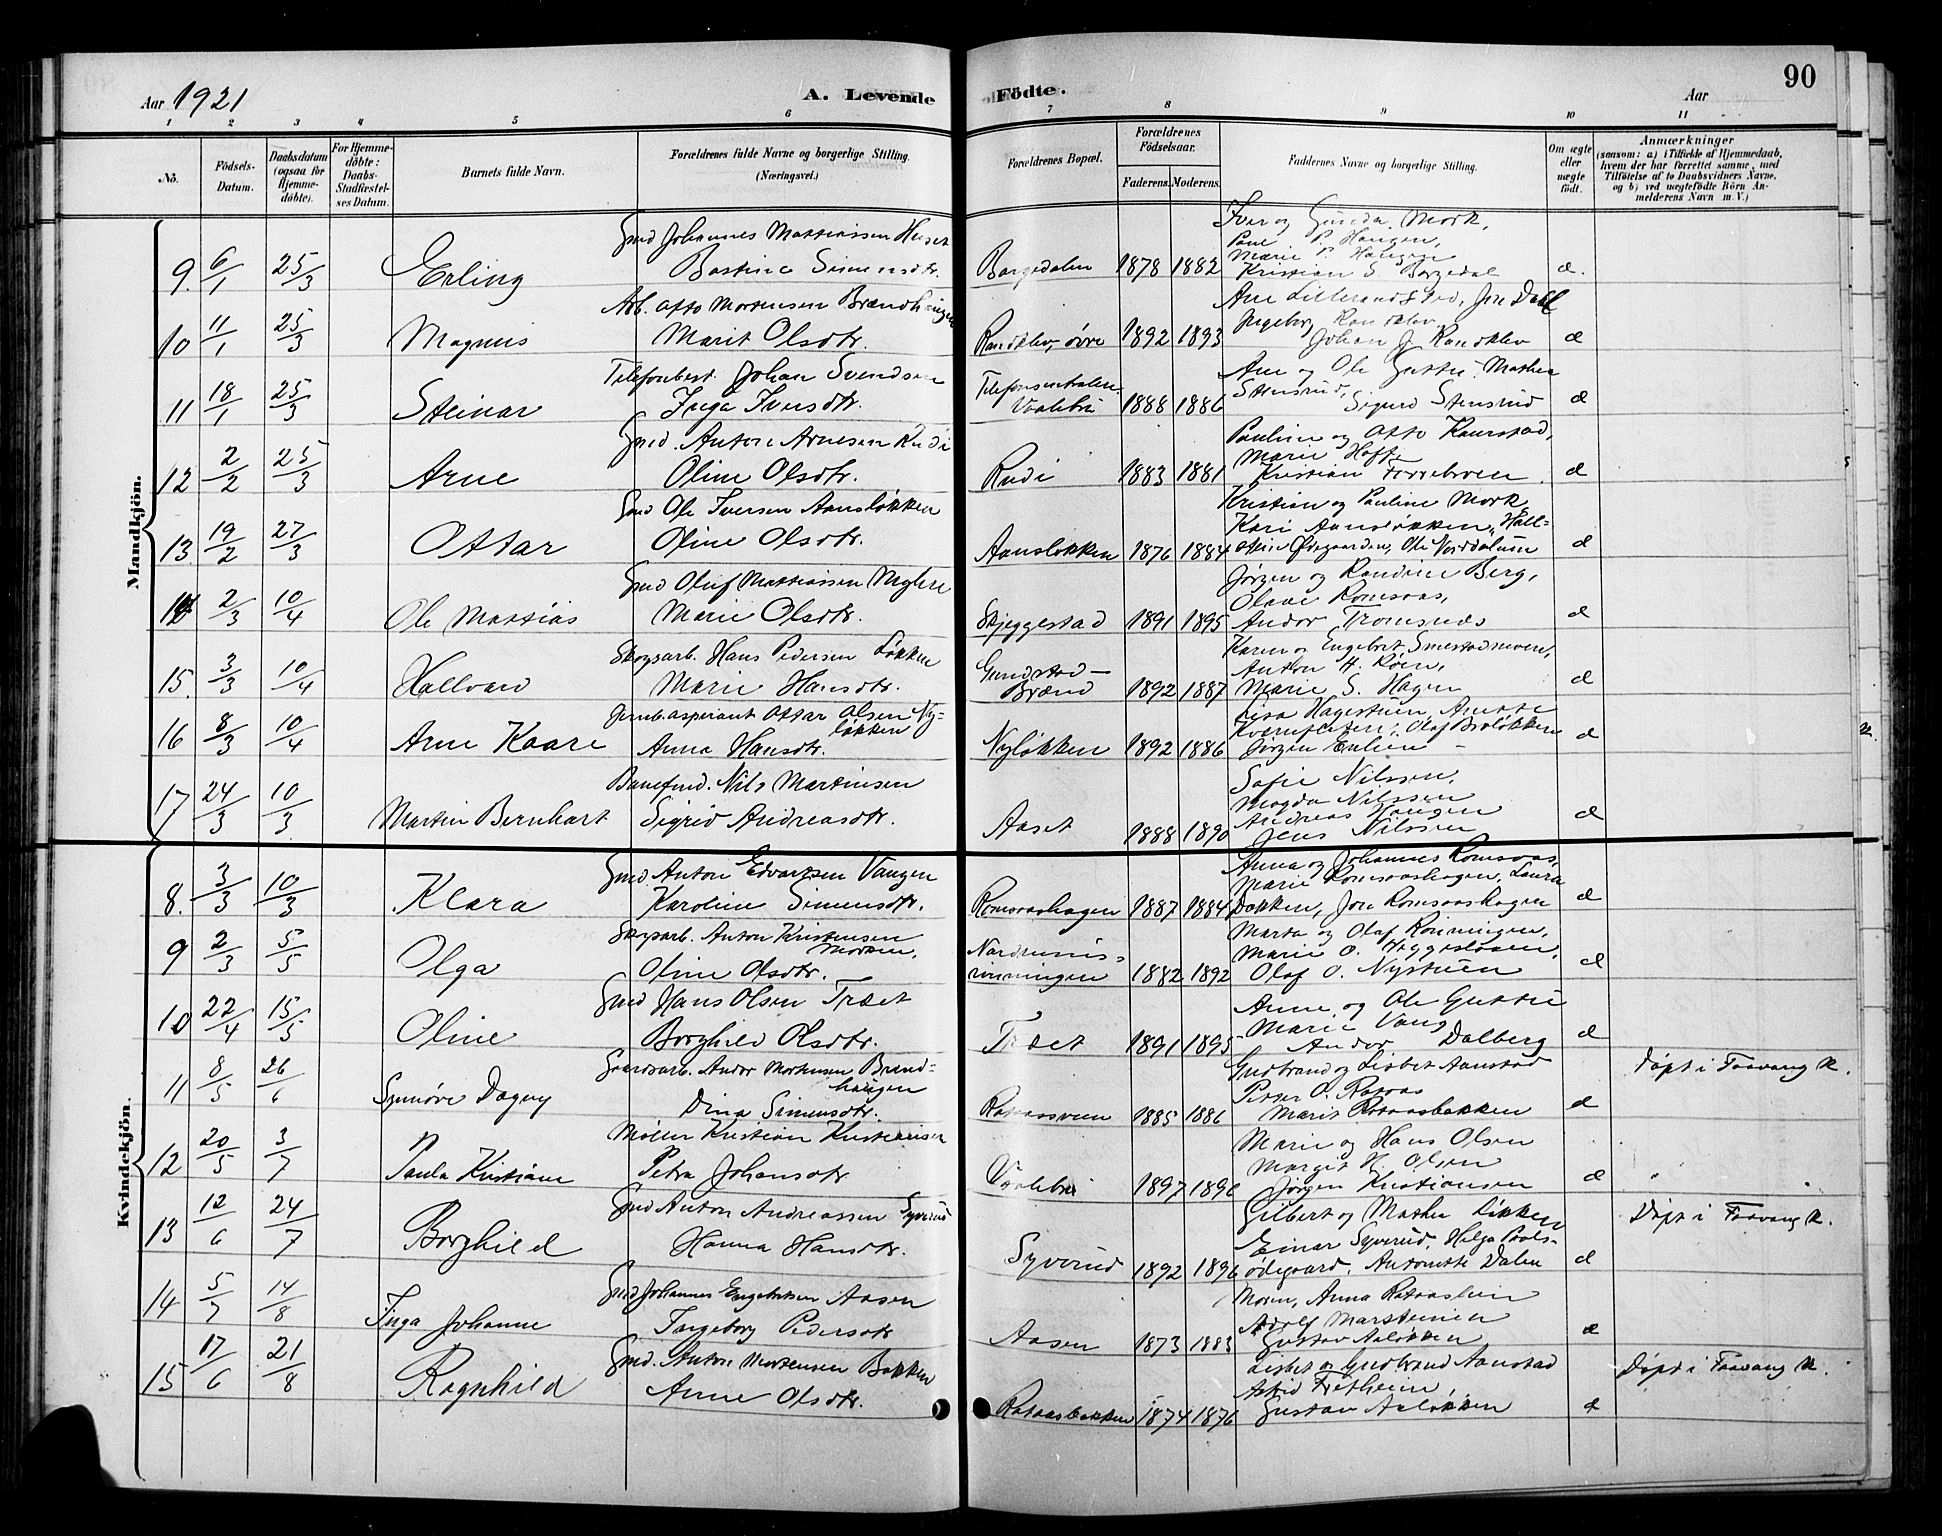 Aar 1921 A. Levende Födte. Aar 90
1 2 3 4 5 6 7 8 9 10 11
No. Födsels-Datum. Daabsdatum (ogsaa for Hjemmedöbte). For Hjemmedöbte: Daabs-Stadfæstelses Datum. Barnets fulde Navn. Forældrenes fulde Navne og borgerlige Stilling. (Næringsvei.) Forældrenes Bopæl. Forældrenes Födselsaar. Faderens. Moderens. Faddernes Navne og borgerlige Stilling. Om ægte eller uægte födt. Anmærkninger (saasom: a) i Tilfælde af Hjemmedaab, hvem der har forrettet samme, med Tilföielse af to Daabsvidners Navne, og b) ved uægtefödte Börn Anmelderens Navn m. V.)
Mandkjön.
9. 6/1 25/3 Erling Gmd Johannes Mattiassen Huset
Bastine Simensdtr. 1878 1882
Iver og Gunda Mork,
P. Haugen,
Marie P. Haugen
Kristian S. Borgedal
10 11/1 25/3 Magnus Arb. Otto Mortensen Brændhaugen
Marit Olsdtr. Randklev, øvre 1892 1893
Jon Dahl
Ingeborg Randklev
Johan J. Randklev
11 18/1 25/3 Steinar Telefonbest. Johan Svendsen
Inga Iversdtr. Telefoncentralen Vaalebru 1888 1886
Ane og Ole Gutsu Mathea
Stensrud, Sigurd Stensrud
12 2/2 25/3 Arne Gmd. Anton Arnesen Rudi
Oline Olsdtr. Rudi 1883 1881
Pauline og Otto Kaurstad,
Marie Hoff,
Kristian
13. 19/2 27/3 Ottar Gmd Ole Iversen Aansløkken
Oline Olsdtr. Aansløkken 1876 1884
Kristian og Pauline Mork
Kari Aansløkken, Hall-
stein Ødegaarden, Ole
14 2/3 10/4 Ole Mattias Gmd Oluf Mattiassen
Marie Olsdtr. Skjeggestad 1891 1895
Jørgen og Randine Berg,
Olave Romsaas,
Andor Tromsnes
15. 3/3 10/4 Hallvard Skogsarb. Hans Pedersen Løkken
Marie Hansdtr. Gundstad-
Brænd 1892 1887
Karen og Engebret Smestadmoen,
Anton H. Røen,
Marie S. Hagen
16 8/3 10/4 Arne Kaare Jernb.aspirant Ottar Olsen Ny-
løkken
Anna Hansdtr. Nyløkken 1892 1886
Lisa Hagestuen, Anette
Olaf Broløkken
Jørgen
17 24/3 10/3 Martin Bernhart Banefmd. Nils Martinsen
Sigrid Andreasdtr. Aaset 1888 1890
Sofie Nilssen,
Magda Nilssen
Andreas Haugen
Jens Nilssen
Kvindekjön.
8. 3/3 10/3 Klara Gmd Anton Edvartsen Vangen
Karoline Simensdtr. Romsaashagen 1887 1884
Anna og Johannes Romsaas,
Marie Romsaashagen, Laura
Dokken, Jon Romsaashagen
9 2/3 5/5 Olga Skogsarb. Anton Kristensen
Moen,
Oline Olsdtr. 1882 1892
Marta og Olaf Rønningen,
Marie O.
Olaf O. Nystuen
10 22/4 15/5 Oline Gmd Hans Olsen Træet
Borghild Olsdtr. Træet 1891 1895
Anne og Ole Gutsu
Marie Vang
Andor Dalberg
11 8/5 26/6 Synnøve Dagny Gaardsarb. Andor Mortensen Brænd-
haugen
Dina Simensdtr. Rataasveen 1885 1886
Gudbrand og Lisbet Aanstad
Peter O. Rataas
Marit Rataasbakken
Døpt i Faavang K.
12 20/5 3/7 Paula Kristiane Møller Kristian Kristensen
Petra Johansdtr Vaalebru 1897 1896
Marie og Hans Olsen
Margit H. Olsen
Jørgen Kristiansen
"
13 12/6 24/7 Borghild Gmd Anton Andreassen Syverud
Hanna Hansdtr. Syverud 1892 1896
Gilbert og Mathea Løkken
Einar Syverud, Helga Paals-
ødegaard, Antonette Dalen
Døpt i Faavang K.
14 5/7 14/8 Inga Johanne Gmd Johannes Engebretsen Aasen
Ingeborg Pedersdtr Aasen 1873 1883
Moren, Anna Rataaslien
Adolf Marsteinen
Gustav Aaløkken
15 17/6 21/8 Ragnhild Gmd. Anton Mortensen Bakken
Anne Olsdtr. Rataasbakken 1874 1876
Lisbet og Gudbrand Aanstad
Astrid Fretheim,
Gustav Aaløkken
Døpt i Faavang K.